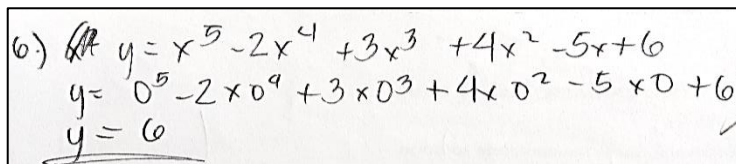 6.) y = x⁵ -2x⁴ +3x³ +4x² -5x+6
y= 0⁵ -2 x 0⁴ +3 x 0³ + 4x 0² - 5 x 0 +6
y = 6